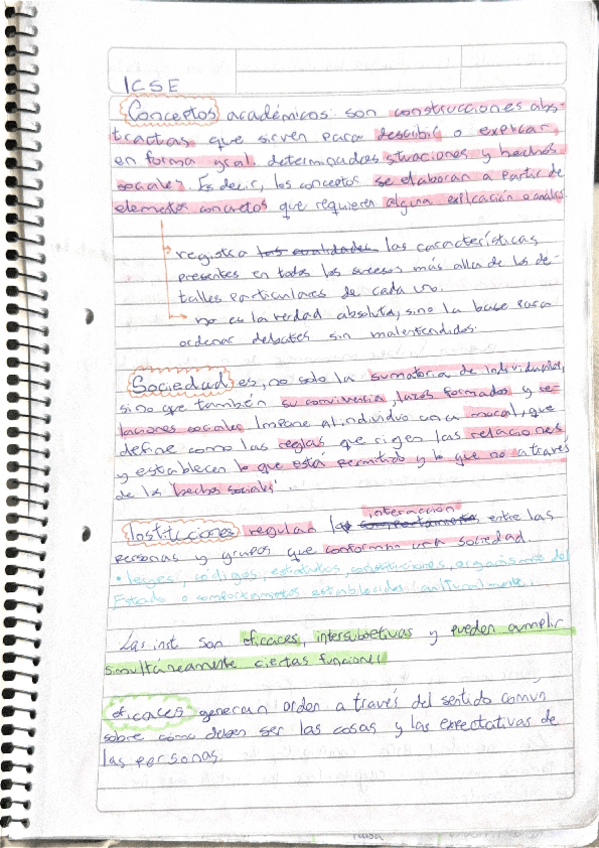 ICSE
Conceptos académicos: son construcciones abs-
tractas que sirven para describir o explicar,
en forma gral. determinadas situaciones y hechos
sociales. Es decir, los conceptos se elaboran a partir de
elementos concretos que requieren alguna explicación o análisis.
registra las cualidades las características
presentes en todos los sucesos más alla de los de-
talles particulares de cada uno.
no es la verdad absoluta, sino la base para
ordenar debates sin malentendidos.
Sociedad es, no solo la sumatoria de individuos,
sino que también su convivencia, lazos formados y re-
laciones sociales. Impone al individuo una moral, que
define como las reglas que rigen las relaciones
y establecen lo que está permitido y lo que no a través
de los 'hechos sociales'.
interacción
Instituciones regulan la comportamiento, entre las
personas y grupos que conforman una sociedad.
• leyes, códigos, estatutos, constituciones, organismos del
Estado o comportamientos establecidos culturalmente.
Las inst. son eficaces, intersubjetivas y pueden cumplir
simultáneamente ciertas funciones
eficaces generan orden a través del sentido común
sobre cómo deben ser las cosas y las expectativas de
las personas.